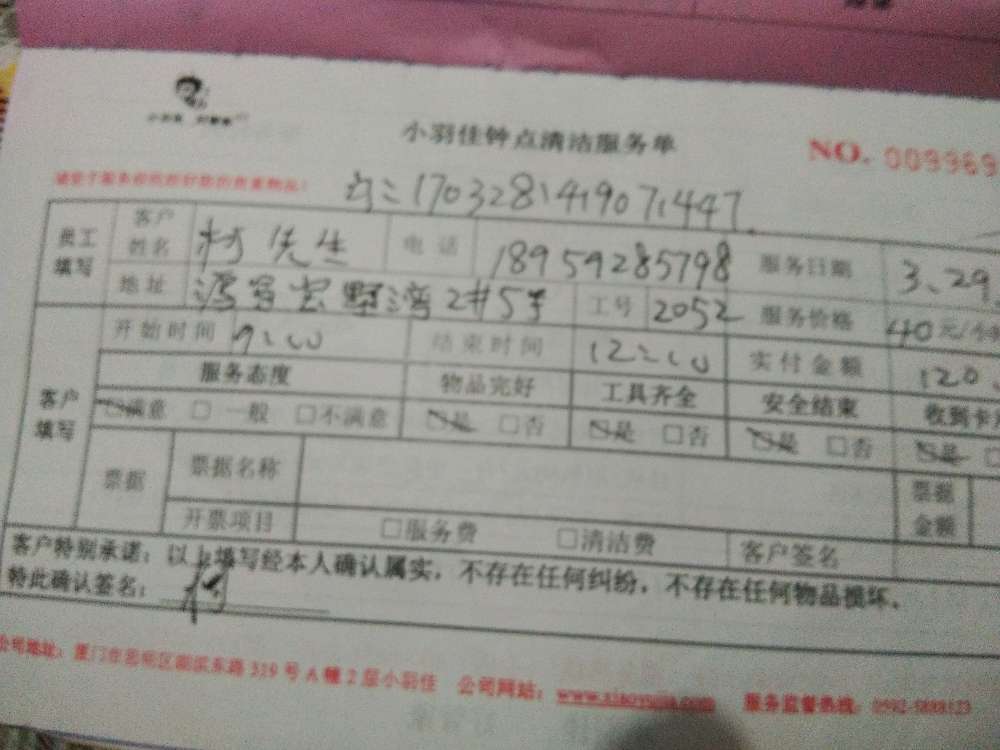 小羽佳钟点清洁服务单
NO. 009969
1703281419071447
员工填写 客户姓名 先生 电话 18959285798 服务日期 3.29
地址 2#5 工号 2052 服务价格 40元/
客户填写 开始时间 9:00 结束时间 12:00 实付金额 120
服务态度 物品完好 工具齐全 安全结束 收到卡
☑满意 □一般 □不满意 ☑是 □否 ☑是 □否 ☑是 □否 ☑是 □
票据 票据名称 票据金额
开票项目 □服务费 □清洁费 客户签名
客户特别承诺：以上填写经本人确认属实，不存在任何纠纷，不存在任何物品损坏。
特此确认签名：
公司地址：厦门市思明区湖滨东路319号A幢2层小羽佳 公司网站：www.xiaoyujia.com 服务监督热线：0592-5888123